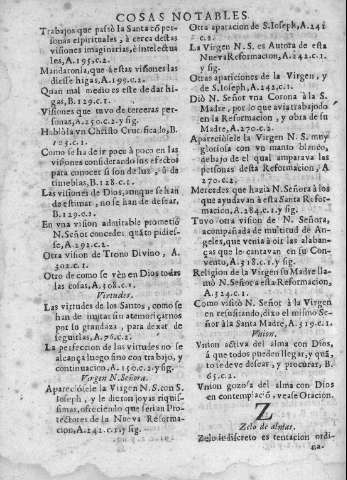 COSAS NOTABLES.
Trabajos que passò la Santa cō personas
espirituales, à cerca destas
visiones imaginarias, è intelectuales,
A.195.c.2.
Mandaronla, que à estas visiones las
diesse higas, A.199.c.2.
Quan mal medio es este de dar higas,
B.129.c.1.
Visiones que tuvo de terceras personas,
A.250.c.2.y sig.
Hablòla vn Christo Crucificado, B.
103.c.1.
Como se ha de ir poco à poco en las
visiones considerando los efectos
para conocer si son de luz, ò de
tinieblas, B.128.c.1.
Las visiones de Dios, aunque se han
de estimar, no se han de desear,
B.129.c.1.
En vna vision admirable prometiò
N. Señor conceder quāto pidiesse,
A.292.c.2.
Otra vision de Trono Divino, A.
302.c.1.
Otro de como se vèn en Dios todas
las cosas, A.308.c.1.
Virtudes.
Las virtudes de los Santos, como se
han de imitar sin atemorizarnos
por su grandeza, para dexar de
seguirlas, A.76.c.2.
La perfeccion de las virtudes no se
alcança luego sino con trabajo, y
continuacion, A.150.c.2.y sig.
Virgen N. Señora.
Apareciòsele la Virgen N.S. con S.
Ioseph, y le dieron joyas riquissimas,
ofreciendo que serian Protectores
de la Nueva Reformacion,
A.242.c.1.y sig.
Otra aparacion de S. Ioseph, A.242
c.1.
La Virgen N.S. es Autora de esta
Nueva Reformacion, A.242.c.1.
y sig.
Otras apariciones de la Virgen, y
de S. Ioseph, A.242.c.1.
Diò N. Señor vna Corona à la S.
Madre, por lo que avia trabajado
en la Reformacion, y obra de su
Madre, A.270.c.2.
Apareciòsele la Virgen N.S. muy
gloriosa con vn manto blanco,
debajo de el qual amparava las
personas desta Reformacion, A.
270.c.2.
Mercedes que hazia N. Señora à los
que ayudavan à esta Santa Reformacion,
A.284.c.1.y sig.
Tuvo otra vision de N. Señora,
acompañada de multitud de Angeles,
que venia à oìr las alabanças
que lo cantavan en su Convento,
A.318.c.1.y sig.
Religion de la Virgen su Madre llamò
N. Señor à esta Reformacion,
A.324.c.1.
Como visitò N. Señor à la Virgen
en resusitando, dixo el mismo Señor
à la Santa Madre, A.319.c.1.
Vnion.
Vnion activa del alma con Dios,
à que todos pueden llegar, y quā
to se deve desear, y procurar, B.
65.c.2.
Vnion gozosa del alma con Dios
en contemplaciō, vease Oracion.
Z
Zelo de almas.
Zelo indiscreto es tentacion ordina-